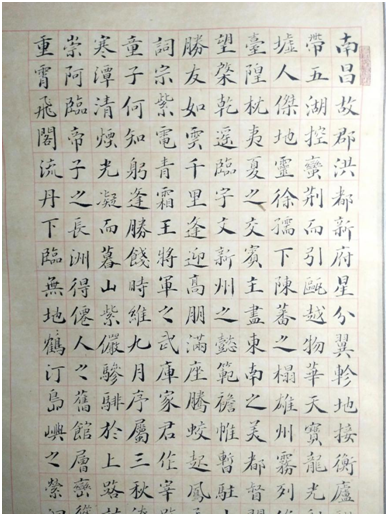 南昌故郡洪都新府星分翼軫地接衡廬
帶五湖控蠻荊而引甌越物華天寶龍光
墟人傑地靈徐孺下陳蕃之榻雄州霧列
臺隍枕夷夏之交賓主盡東南之美都督
望棨戟遥臨宇文新州之懿範襜帷暫駐
勝友如雲千里逢迎高朋滿座騰蛟起鳳
詞宗紫電青霜王將軍之武庫家君作宰
童子何知躬逢勝餞時維九月序屬三秋
寒潭清煙光凝而暮山紫儼驂騑於上路
崇阿臨帝子之長洲得僊人之舊館層巒
重霄飛閣流丹下臨無地鶴汀島嶼之縈